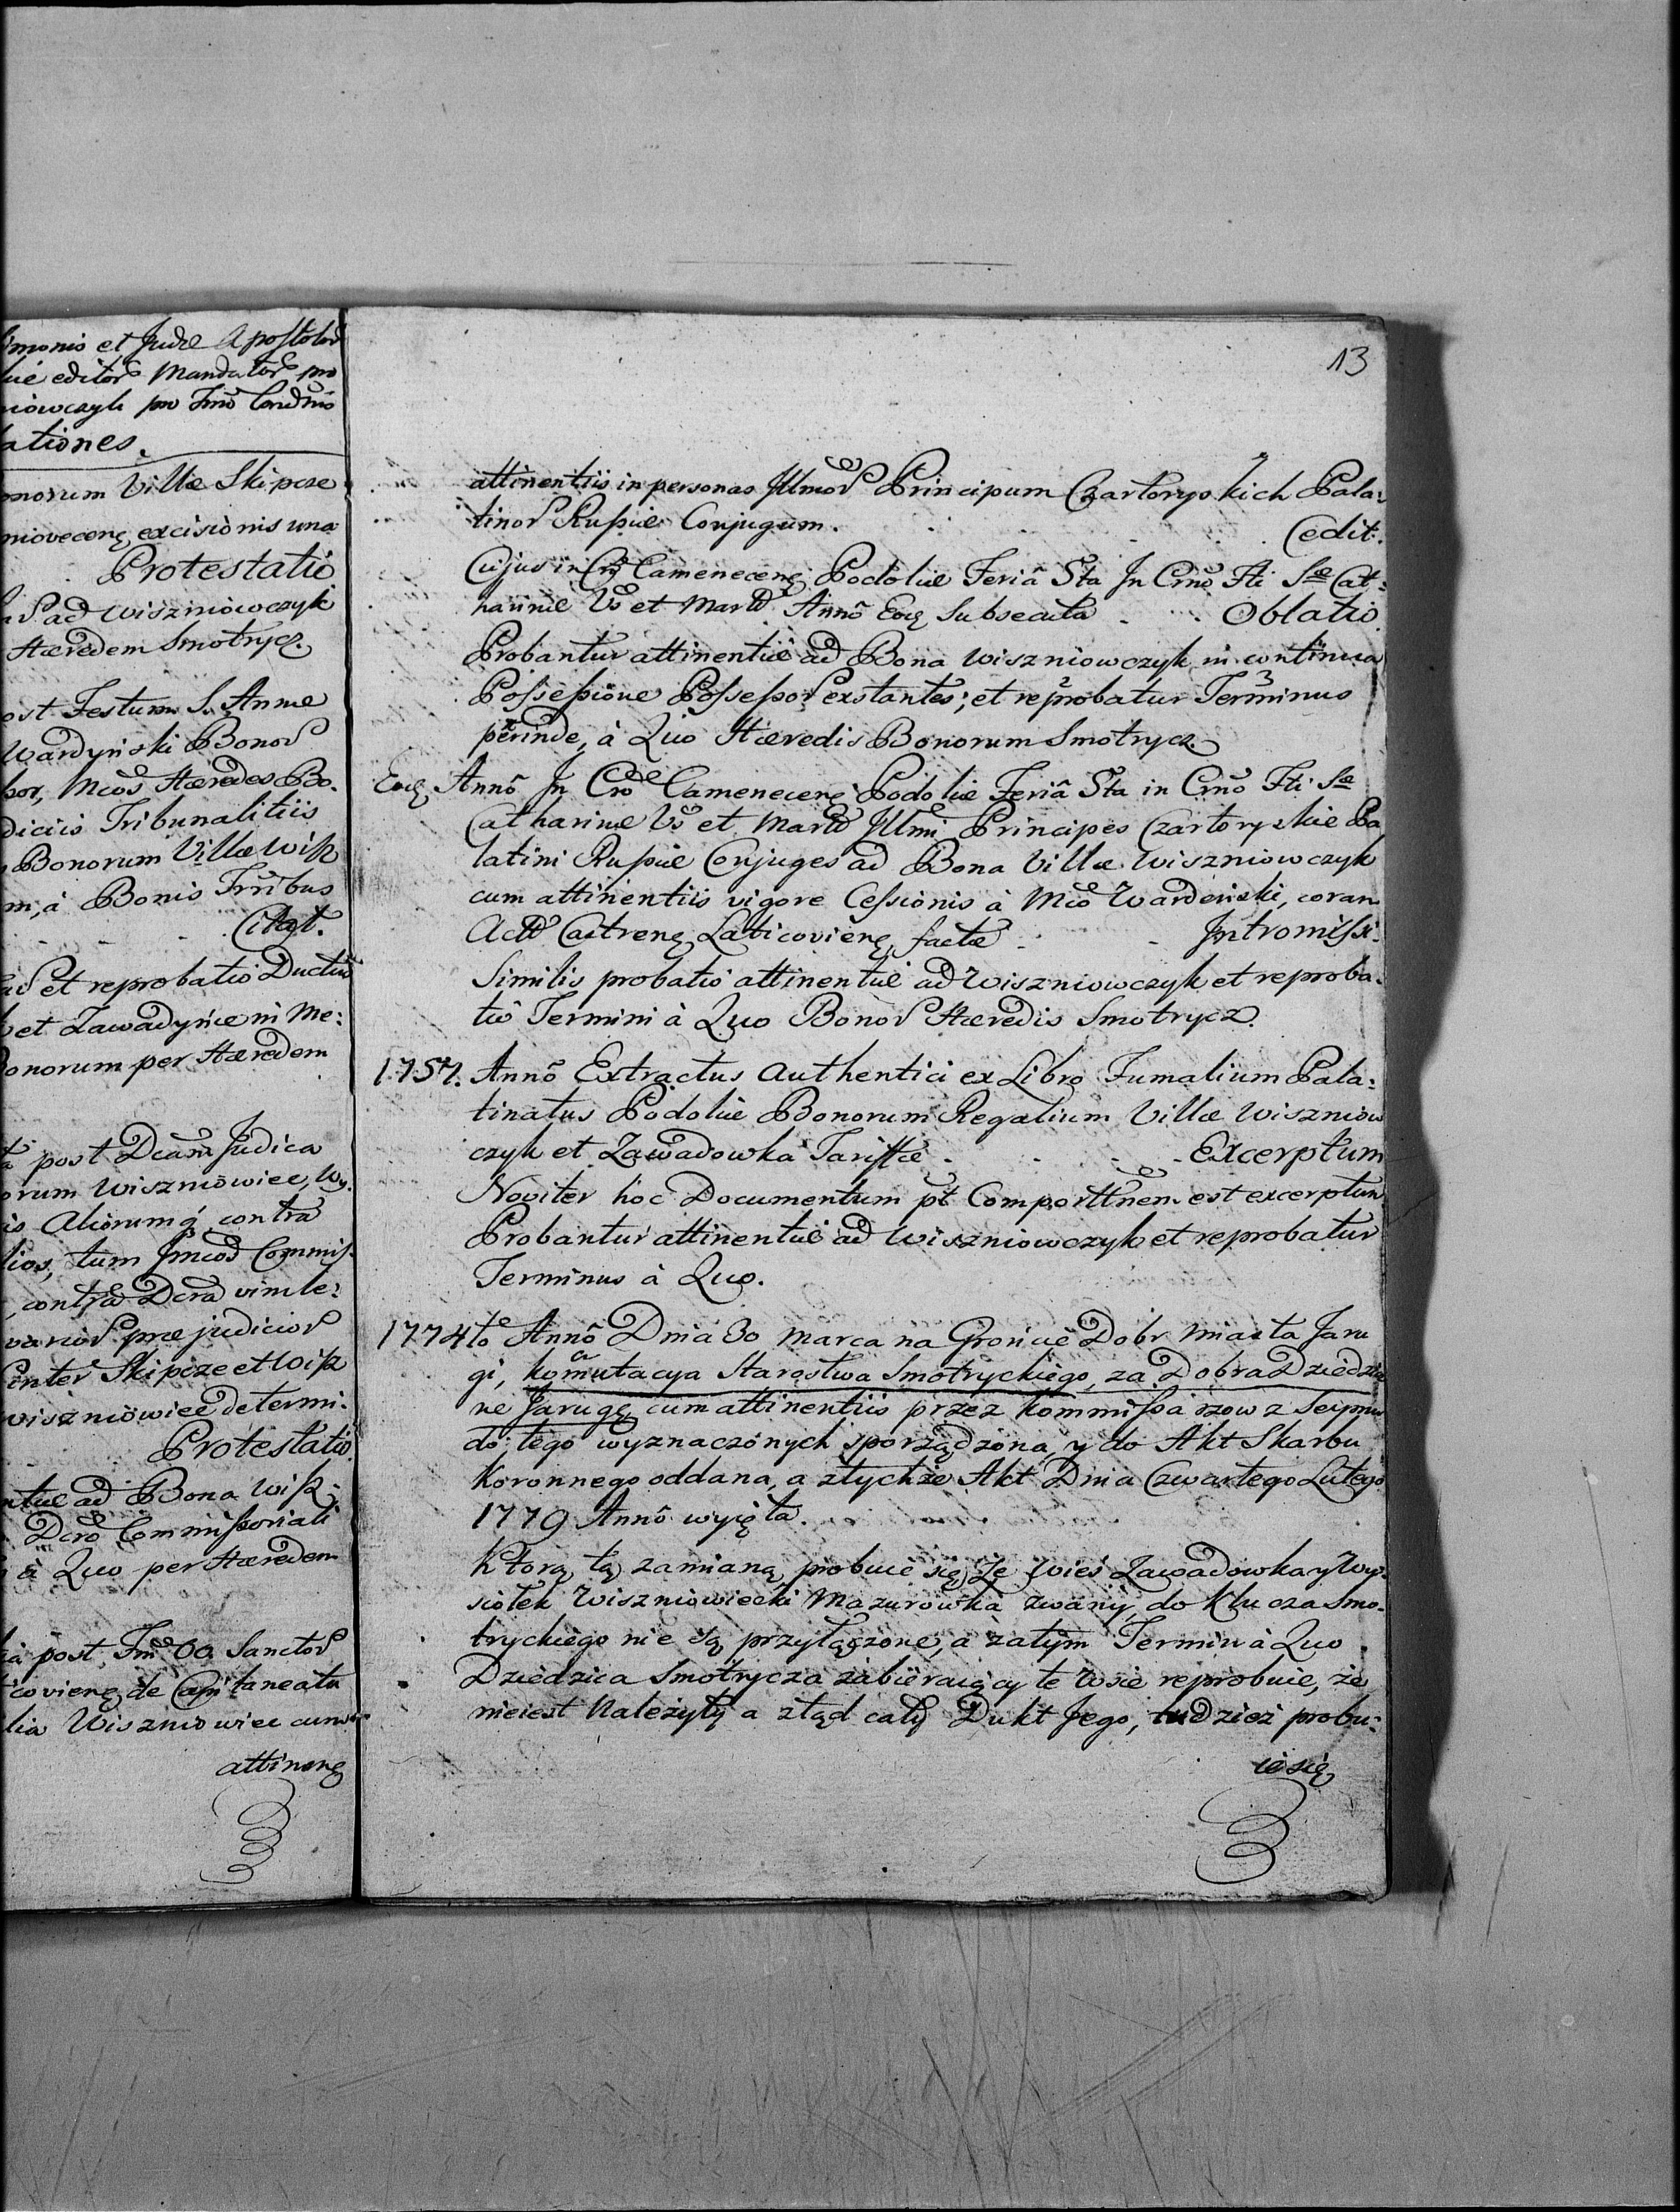 imonis et Judæ Apostolor
editor Mandator pro
niowczyk pro Fmo Condnio
lationes.
onorum Villæ Skipcze
niovecens excisionis una
Protestatio
ad Wiszniowczyk
Hæredem Smotrycz.
ost Festum S. Annæ
Wardyński Bonor
Mcos Hæredes Bo-
diciis Tribunalitiis
Bonorum Villæ Wisz
m, à Bonis Trribus
Citat.
et reprobatio Ductus
et Zawadyńce in Me:
onorum per Hæredem
post Dcam Judica
orum Wiszniowiec, Wy.
is Aliorumq contra
lios, tum Jmcos Commiss
, contra Dcra vim le:
varior præjudicior
inter Skipcze et Wisz
wiszniowiec determi:
Protestatio
ntiæ ad Bona Wisz:
Dcro Commissoriali
à Quo per Hæredem
post Fm OO Sanctor
ticoviens de Capitaneatu
lia Wiszniowiec cum
attinens
13
attinentiis in personas Jllmor Principum Czartoryskich Pala:
tinor Russiæ Conjugum. Cedit.
Cujus in Cro Camenecens Podoliæ Feriâ Sta Jn Crno Fti Sæ Cat:
harinæ Vs et Mart Annô Eoq Subsecuta Oblatio
Probantur attinentiæ ad Bona Wiszniowczyk in continua
Possessione Possessor exstantes; et reprobatur Terminus
perinde, à Quo Hæredis Bonorum Smotrycz.
Eoq Annô Jn Cro Camenecens Podoliæ Feriâ Sta in Crno Fti Sæ
Catharinæ Vs et Mart Jllmi Principes Czartoryskie Pa
latini Russiæ Conjuges ad Bona Villæ Wiszniowczyk
cum attinentiis vigore Cessionis à Mco Wardeński, coram
Act Castrens Laticoviens factæ Jntromissi.
Similis probatio attinentiæ ad Wiszniowczyk et reproba-
tio Termini à Quo Bonor Hæredis Smotrycz.
1757. Annô Extractus Authentici ex Libro Fumalium Pala:
tinatus Podoliæ Bonorum Regalium Villæ Wiszniow
czyk et Zawadowka Tariffæ Excerptum
Noviter hoc Documentum pt Comporttnem est excerptum
Probantur attinentiæ ad Wiszniowczyk et reprobatur
Terminus à Quo.
1774to Annô Dnia 30 Marca na Gruncie Dobr Miasta Jaru
gi, Komutacya Starostwa Smotryckiego, za Dobra Dziedzicz
ne Jarugę cum attinentiis przez Kommissarzow z Seymu
do tego wyznaczonych sporządzona, y do Akt Skarbu
Koronnego oddana, a ztychże Akt Dnia Czwartego Lutego
1779 Annô wyięta.
Którą tą zamianą probuie się, że Wieś Zawadowka y Wy-
siołek Wiszniowiecki Mazurowka zwany, do Klucza Smo-
tryckiego nie są przyłączone, a zatym Termin à Quo
Dziedzica Smotrycza zabieraiący te Wsie reprobuie, że
nieiest Należyty, a ztąd cały Dukt Jego, tudzież probu:
ie się